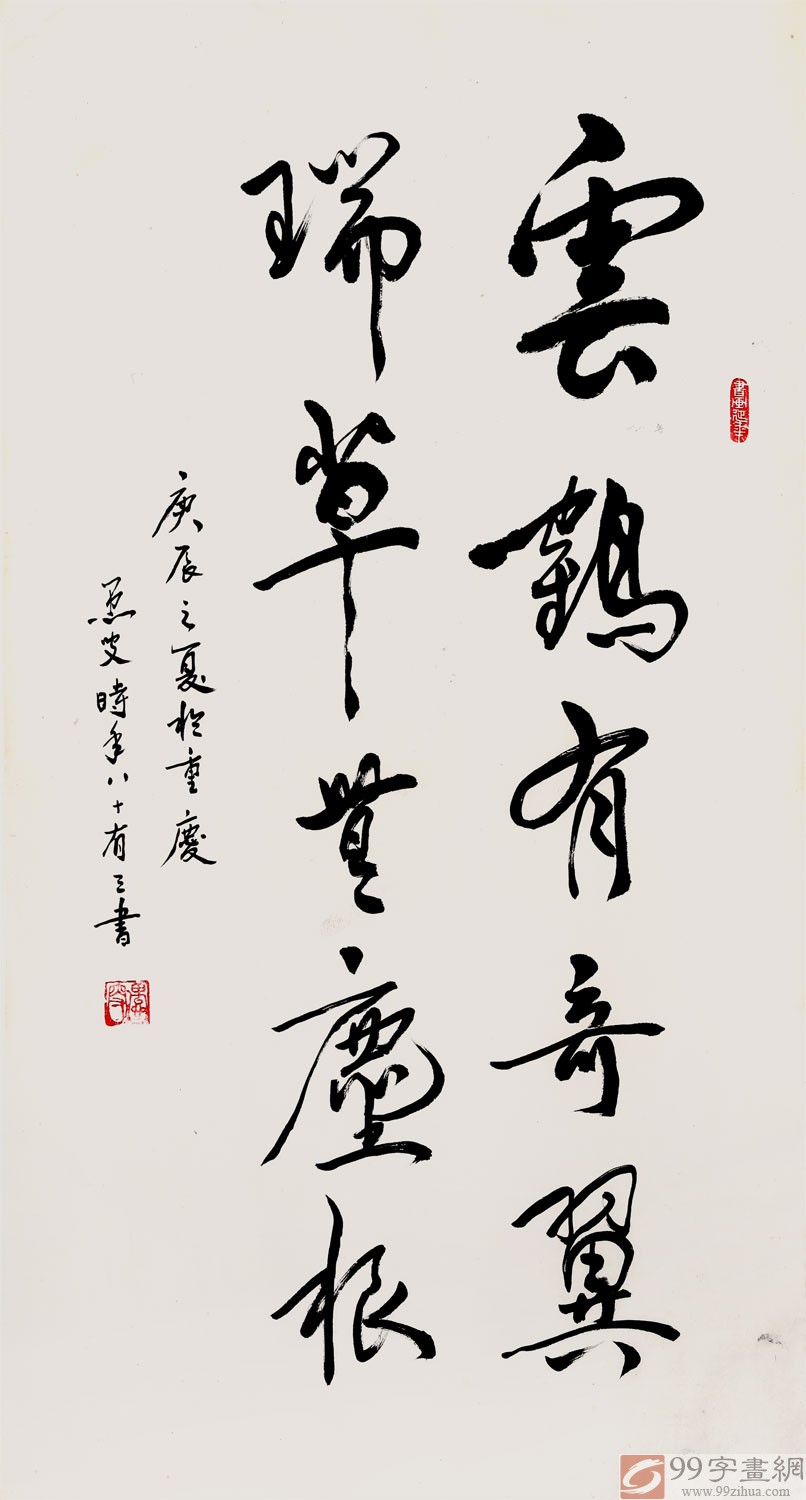 雲鶴有奇翼
瑞草無塵根
庚辰之夏於重慶
叟時年八十有三書
書畫延年
99字畫網
www.99zihua.com